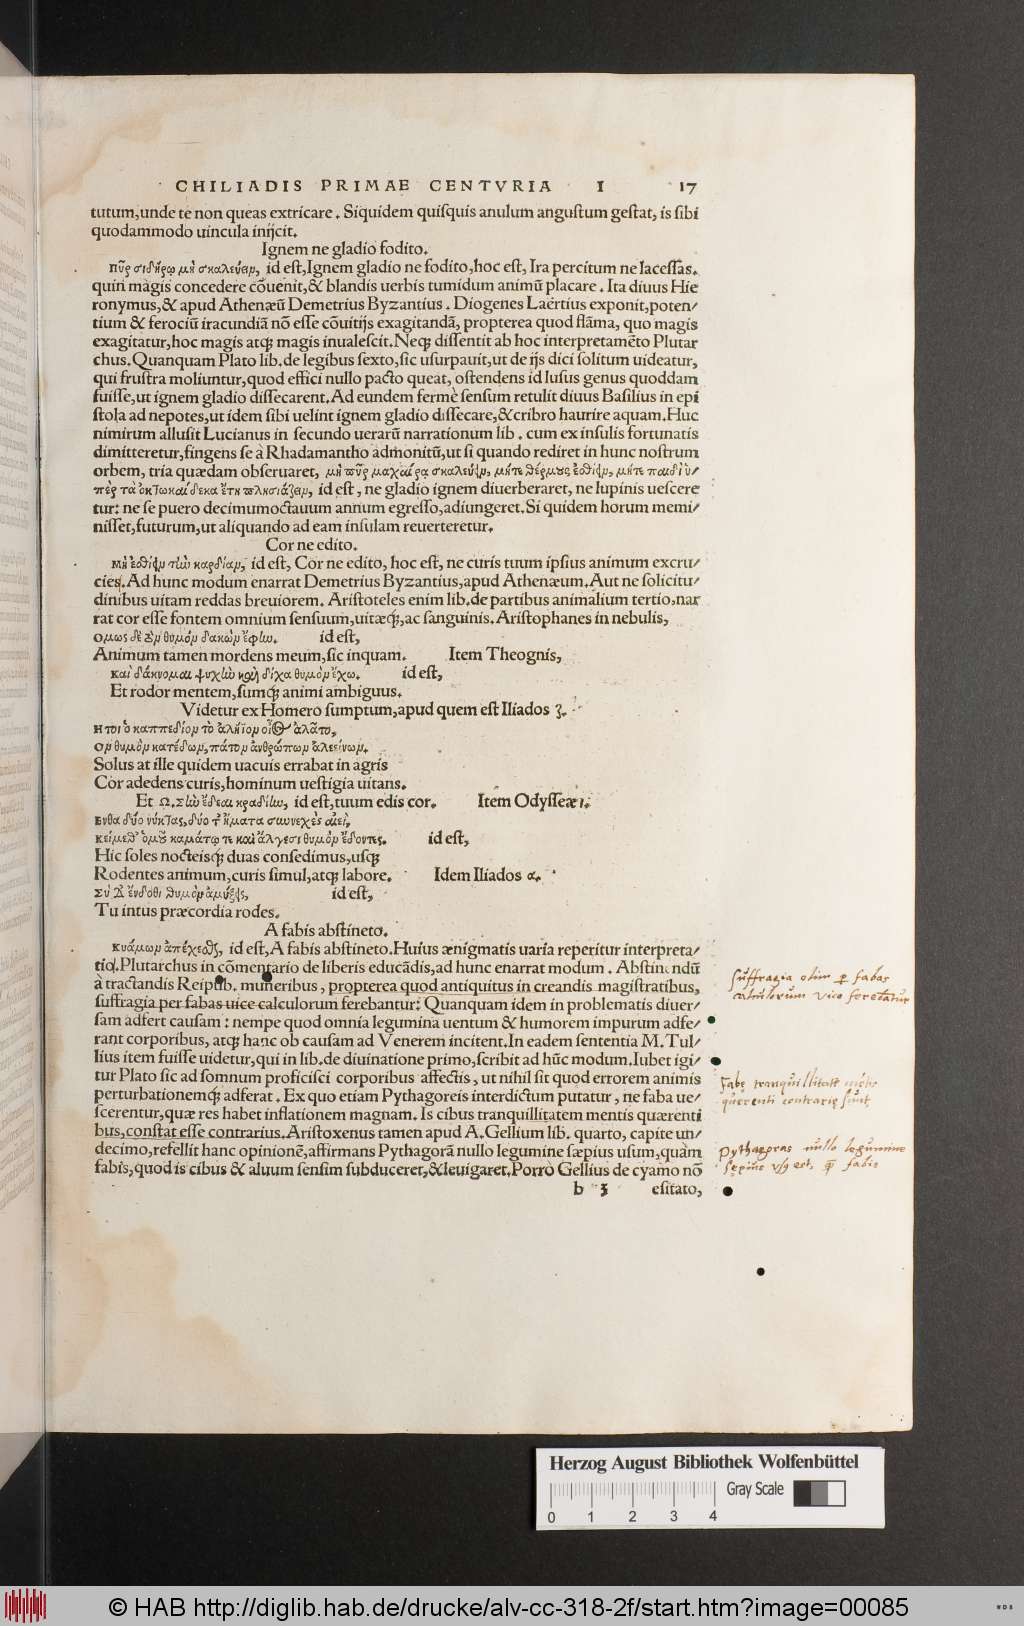 CHILIADIS PRIMAE CENTVRIA I 17
tutum,unde te non queas extricare. Siquidem quisquis anulum angustum gestat, is sibi
quodammodo uincula inijcit.
Ignem ne gladio fodito.
πῦρ σιδήρῳ μὴ σκαλεύειν, id est,Ignem gladio ne fodito,hoc est, Ira percitum ne lacessas.
quin magis concedere cōuenit,& blandis uerbis tumidum animū placare. Ita diuus Hie
ronymus,& apud Athenæū Demetrius Byzantius. Diogenes Laërtius exponit,poten/
tium & ferociū iracundiā nō esse cōuitijs exagitandā, propterea quod flāma, quo magis
exagitatur,hoc magis atq; magis inualescit.Neq; dissentit ab hoc interpretamēto Plutar
chus.Quanquam Plato lib.de legibus sexto,sic usurpauit,ut de ijs dici solitum uideatur,
qui frustra moliuntur,quod effici nullo pacto queat, ostendens id lusus genus quoddam
fuisse,ut ignem gladio dissecarent.Ad eundem fermè sensum retulit diuus Basilius in epi
stola ad nepotes,ut idem sibi uelint ignem gladio dissecare,&cribro haurire aquam.Huc
nimirum allusit Lucianus in secundo uerarū narrationum lib. cum ex insulis fortunatis
dimitteretur,fingens se à Rhadamantho admonitū,ut si quando rediret in hunc nostrum
orbem, tria quædam obseruaret, μὴ πῦρ μαχαίρᾳ σκαλεύειν, μήτε θέρμους ἐσθίειν, μήτε παιδὶ ὑ/
πὲρ τὰ ὀκτωκαίδεκα ἔτη πλησιάζειν, id est, ne gladio ignem diuerberaret, ne lupinis uescere
tur: ne se puero decimumoctauum annum egresso,adiungeret.Si quidem horum memi/
nisset,futurum,ut aliquando ad eam insulam reuerteretur.
Cor ne edito.
μὴ ἐσθίειν τὴν καρδίαν, id est, Cor ne edito, hoc est, ne curis tuum ipsius animum excru/
cies.Ad hunc modum enarrat Demetrius Byzantius,apud Athenæum.Aut ne solicitu/
dinibus uitam reddas breuiorem. Aristoteles enim lib.de partibus animalium tertio,nar
rat cor esse fontem omnium sensuum,uitæq;,ac sanguinis.Aristophanes in nebulis,
ομως δὲ τὸν θυμὸν δακὼν ἔφην. id est,
Animum tamen mordens meum,sic inquam. Item Theognis,
καὶ δάκνομαι ψυχὴν καὶ δίχα θυμὸν ἔχω. id est,
Et rodor mentem,sumq; animi ambiguus.
Videtur ex Homero sumptum,apud quem est Iliados ζ.
Ητοι ὁ καππεδίον τὸ ἀλήϊον οἶος ἀλᾶτο,
Ον θυμὸν κατέδων, πάτον ἀνθρώπων ἀλεείνων.
Solus at ille quidem uacuis errabat in agris
Cor adedens curis,hominum uestigia uitans.
Et Ω, Σὴν ἔδεαι κραδίην, id est,tuum edis cor. Item Odysseæ ι.
Ενθα δύο νύκτας,δύο τ' ἤματα συνεχὲς αἰεὶ,
Κείμεθ' ὁμοῦ καμάτῳ τε καὶ ἄλγεσι θυμὸν ἔδοντες. id est,
Hic soles nocteisq; duas consedimus,usq;
Rodentes animum,curis simul,atq; labore. Idem Iliados α.
Σὺ δ' ἔνδοθι θυμὸν ἀμύξεις, id est,
Tu intus præcordia rodes.
A fabis abstineto.
Κυάμων ἀπέχεσθε, id est,A fabis abstineto.Huius ænigmatis uaria reperitur interpreta/
tio.Plutarchus in cōmentario de liberis educādis,ad hunc enarrat modum. Abstinendū
à tractandis Reipub. muneribus, propterea quod antiquitus in creandis magistratibus,
suffragia per fabas uice calculorum ferebantur: Quanquam idem in problematis diuer/
sam adfert causam: nempe quod omnia legumina uentum & humorem impurum adfe/
rant corporibus, atq; hanc ob causam ad Venerem incitent.In eadem sententia M.Tul/
lius item fuisse uidetur,qui in lib.de diuinatione primo,scribit ad hūc modum.Iubet igi/
tur Plato sic ad somnum proficisci corporibus affectis, ut nihil sit quod errorem animis
perturbationemq; adferat. Ex quo etiam Pythagoreis interdictum putatur, ne faba ue/
scerentur,quæ res habet inflationem magnam. Is cibus tranquillitatem mentis quærenti
bus,constat esse contrarius.Aristoxenus tamen apud A.Gellium lib. quarto, capite un/
decimo,refellit hanc opinionē,affirmans Pythagorā nullo legumine sæpius usum,quàm
fabis,quod is cibus & aluum sensim subduceret,&leuigaret.Porrò Gellius de cyamo nō
b 3 esitato,
Suffragia olim p fabas
calculorum vice ferebatur
Fabę tranquillitatē mētis
querenti contrarię sunt
Pythagoras nullo legumine
sępius usus est, quā fabis
Herzog August Bibliothek Wolfenbüttel
Gray Scale
0 1 2 3 4
© HAB http://diglib.hab.de/drucke/alv-cc-318-2f/start.htm?image=00085